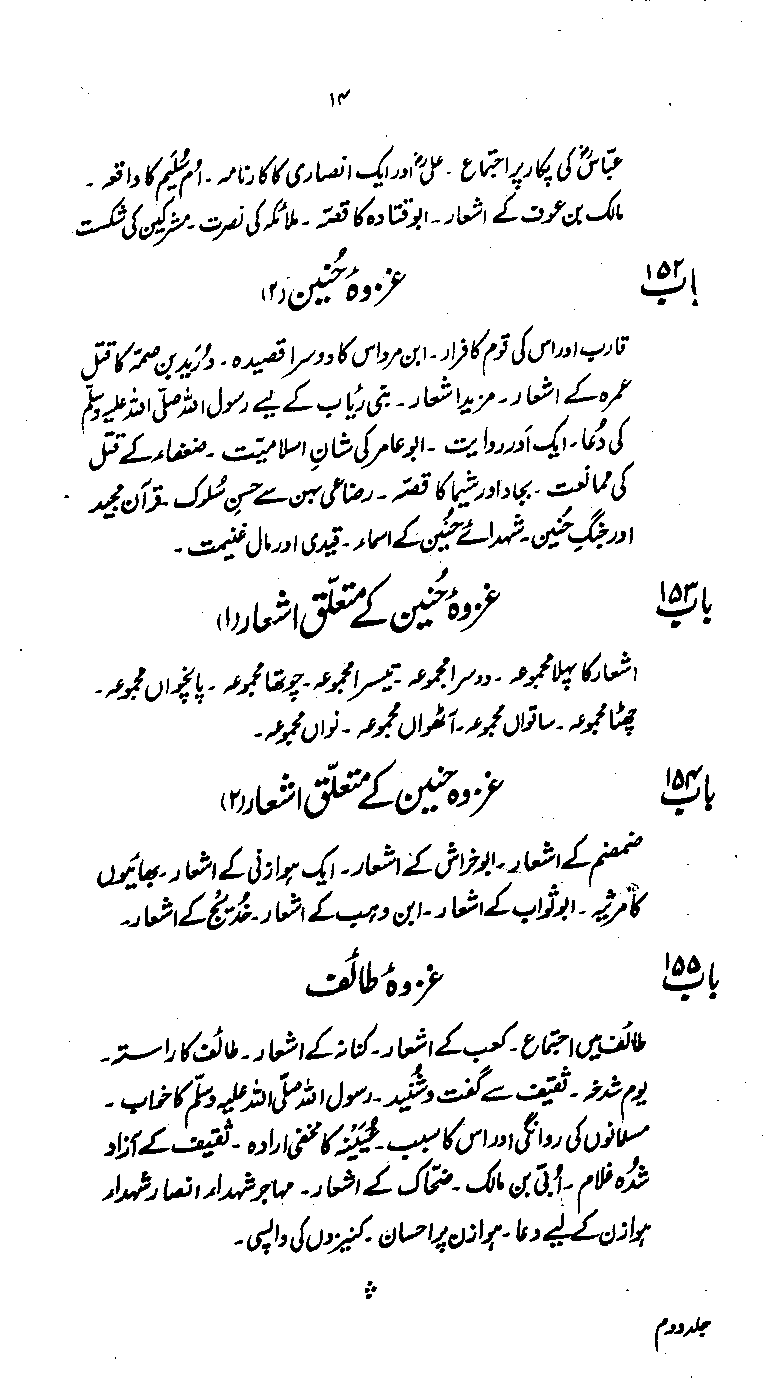 ۱۴
عبّاسؓ کی پکار پر اجتماع ۔ علیؓ اور ایک انصاری کا کارنامہ ۔ اُم سُلَیم کا واقعہ ۔
مالک بن عوف کے اشعار ۔ ابو قتادہ کا قصّہ ۔ ملائکہ کی نصرت ۔ مشرکین کی شکست
باب ۱۵۲ غزوۂ حُنین (۲)
قارب اور اس کی قوم کا فرار ۔ ابن مرداس کا دوسرا قصیدہ ۔ دُرَید بن صمّہ کا قتل
عمرہ کے اشعار ۔ مزید اشعار ۔ بنی رِیاب کے لیے رسول اللہ صلّی اللہ علیہ وسلّم
کی دُعا ۔ ایک اَور روایت ۔ ابو عامر کی شانِ اسلامیّت ۔ ضعفاء کے قتل
کی ممانعت ۔ بجاد اور شیما کا قصّہ ۔ رضاعی بہن سے حسنِ سُلوک ۔ قرآن مجید
اور جنگِ حُنین ۔ شہدائے حُنین کے اسماء ۔ قیدی اور مال غنیمت ۔
باب ۱۵۳ غزوۂ حُنین کے متعلّق اشعار (۱)
اشعار کا پہلا مجموعہ ۔ دوسرا مجموعہ ۔ تیسرا مجموعہ ۔ چوتھا مجموعہ ۔ پانچواں مجموعہ ۔
چھٹا مجموعہ ۔ ساتواں مجموعہ ۔ آٹھواں مجموعہ ۔ نواں مجموعہ ۔
باب ۱۵۴ غزوہ حنین کے متعلّق اشعار (۲)
ضمضم کے اشعار ۔ ابو خراش کے اشعار ۔ ایک ہوازنی کے اشعار ۔ بھائیوں
کا مرثیہ ۔ ابو ثواب کے اشعار ۔ ابن وہب کے اشعار ۔ خُدَیج کے اشعار ۔
باب ۱۵۵ غزوۂ طائف
طائف میں اجتماع ۔ کعب کے اشعار ۔ کنانہ کے اشعار ۔ طائف کا راستہ ۔
یوم شدخہ ۔ ثقیف سے گفت و شُنید ۔ رسول اللہ صلّی اللہ علیہ وسلّم کا خواب ۔
مسلمانوں کی روانگی اور اس کا سبب ۔ عُیَیْنہ کا مخفی ارادہ ۔ ثقیف کے آزاد
شُدہ غلام ۔ اُبَیّ بن مالک ۔ ضحّاک کے اشعار ۔ مہاجر شہداء انصار شہداء
ہوازن کے لیے دعا ۔ ہوازن پر احسان ۔ کنیزوں کی واپسی ۔
جلد دوم